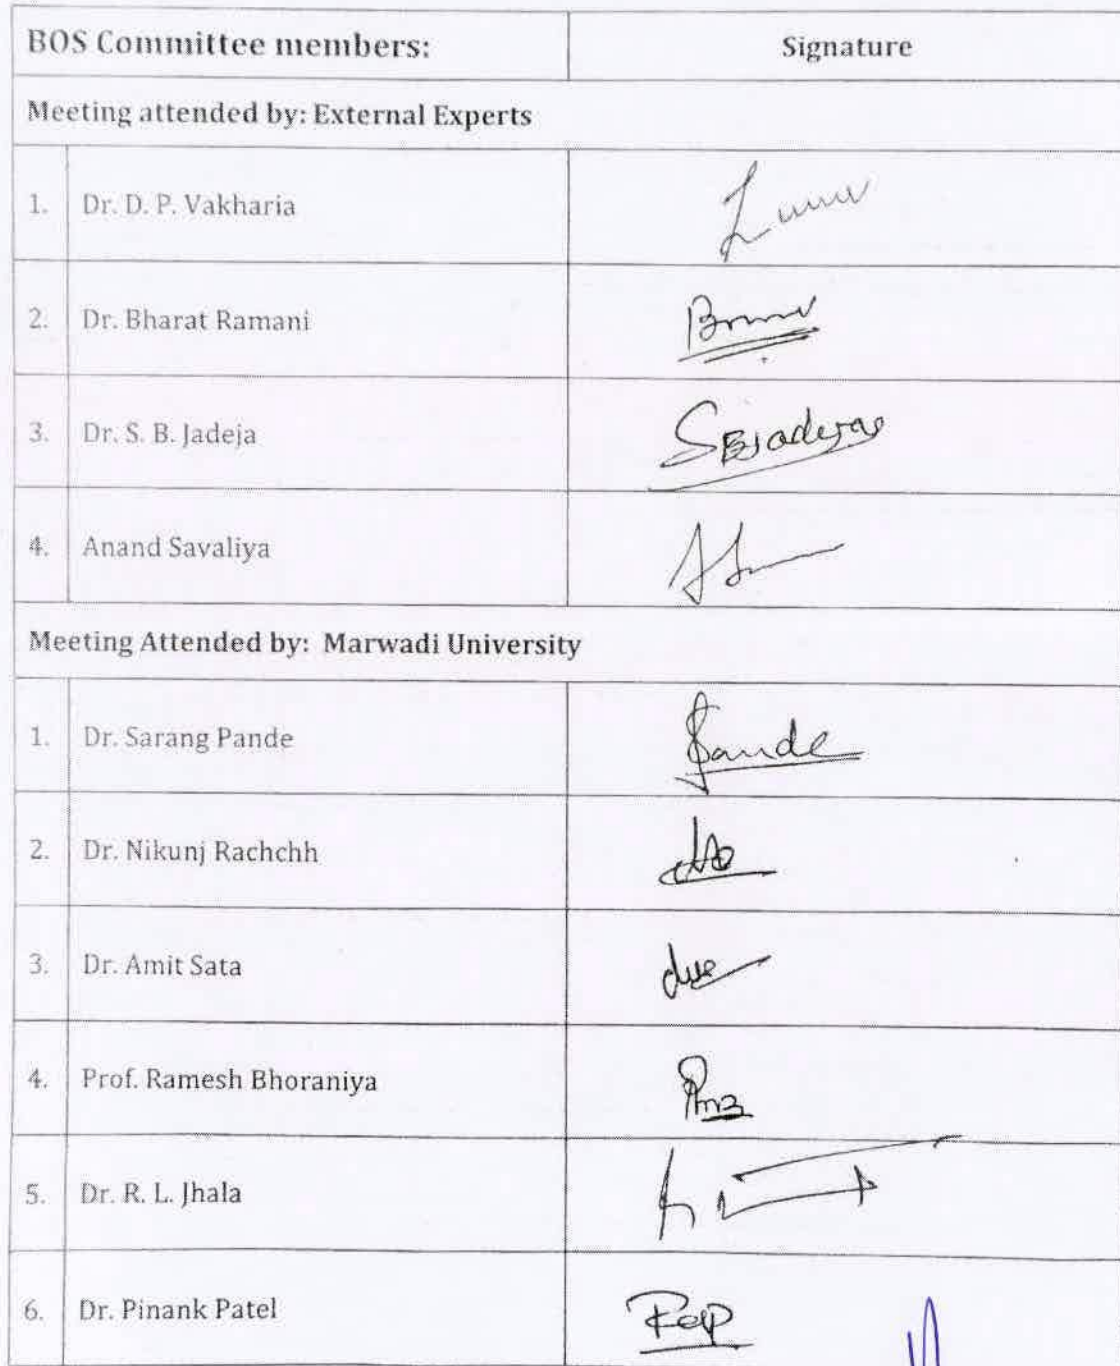 BOS Committee members: Signature
Meeting attended by: External Experts
1. Dr. D. P. Vakharia
2. Dr. Bharat Ramani
3. Dr. S. B. Jadeja SBJadeja
4. Anand Savaliya
Meeting Attended by: Marwadi University
1. Dr. Sarang Pande Pande
2. Dr. Nikunj Rachchh
3. Dr. Amit Sata
4. Prof. Ramesh Bhoraniya
5. Dr. R. L. Jhala
6. Dr. Pinank Patel